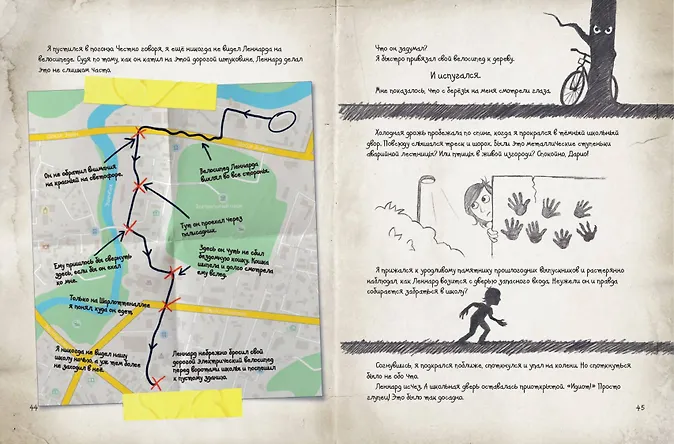 Я пустился в погоню. Честно говоря, я ещё никогда не видел Леннарда на
велосипеде. Судя по тому, как он катил на этой дорогой штуковине, Леннард делал
это не слишком часто.
Он не обратил внимания
на красный на светофоре.
Велосипед Леннарда
вилял во все стороны.
Тут он проехал через
палисадник.
Ему пришлось бы свернуть
здесь, если бы он ехал
ко мне.
Здесь он чуть не сбил
бездомную кошку. Кошка
шипела и долго смотрела
ему вслед.
Только на Шарлоттеналлее
я понял, куда он едет.
Я никогда не видел нашу
школу ночью, а уж тем более
не заходил в неё.
Леннард небрежно бросил свой
дорогой электрический велосипед
перед воротами школы и поспешил
к пустому зданию.
44
Что он задумал?
Я быстро привязал свой велосипед к дереву.
И испугался.
Мне показалось, что с берёзы на меня смотрели глаза.
Холодная дрожь пробежала по спине, когда я прокрался в тёмный школьный
двор. Повсюду слышался треск и шорох. Были это металлические ступеньки
аварийной лестницы? Или птица в живой изгороди? Спокойно, Дарио!
Я прижался к уродливому памятнику прошлогодних выпускников и растерянно
наблюдал, как Леннард возится с дверью запасного входа. Неужели он и правда
собирается забраться в школу?
Согнувшись, я подкрался поближе, споткнулся и упал на колени. Но споткнуться
было не обо что.
Леннард исчез. А школьная дверь оставалась приоткрытой. «Идиот!» Просто
глупец! Это было так досадно.
45